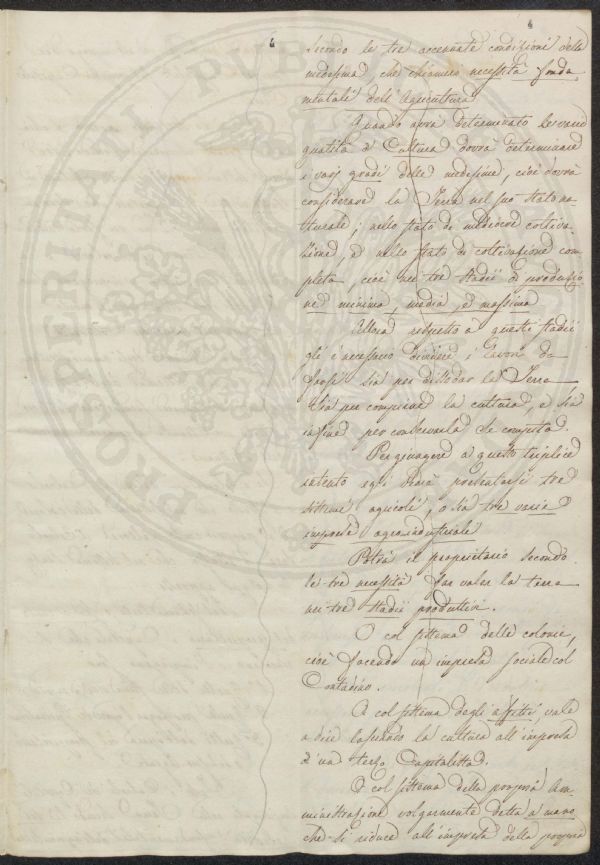 4
4
secondo le tre accennate condizioni della
medesima che chiamerò necessità fonda
mentali dell'Agricoltura
Quando avrà determinato le varie
qualità di Cultura dovrà determinare
i varj gradi delle medesime, cioè dovrà
considerare la Terra nel suo stato na
turale; nello stato di mediocre coltiva
zione, e nello stato di coltivazione com
pleta, cioè nei tre stadii di produzio
ne minima, media, e massima
Allora rispetto a questi stadii
gli è necessario dividere i lavori da
farsi sia per dissodar la Terra
sia per compirne la cultura, e sia
infine per conservarla se compiuta.
Per giungere a questo triplice
intento egli dovrà tre
sistemi agricoli, o sia tre varie
imprese agroindustriali
Potrà il proprietario secondo
le tre necessità far valer la terra
nei tre stadii produttivi.
O col sistema delle colonie,
cioè facendo un impresa sociale col
Contadino.
O col sistema degli affitti, vale
a dire lasciando la cultura all'impresa
d'un terzo Capitalista.
O col sistema della propria Am
ministrazione volgarmente detta a mano
che si riduce all'impresa della propria
PROSPERITATI PVBLICAE